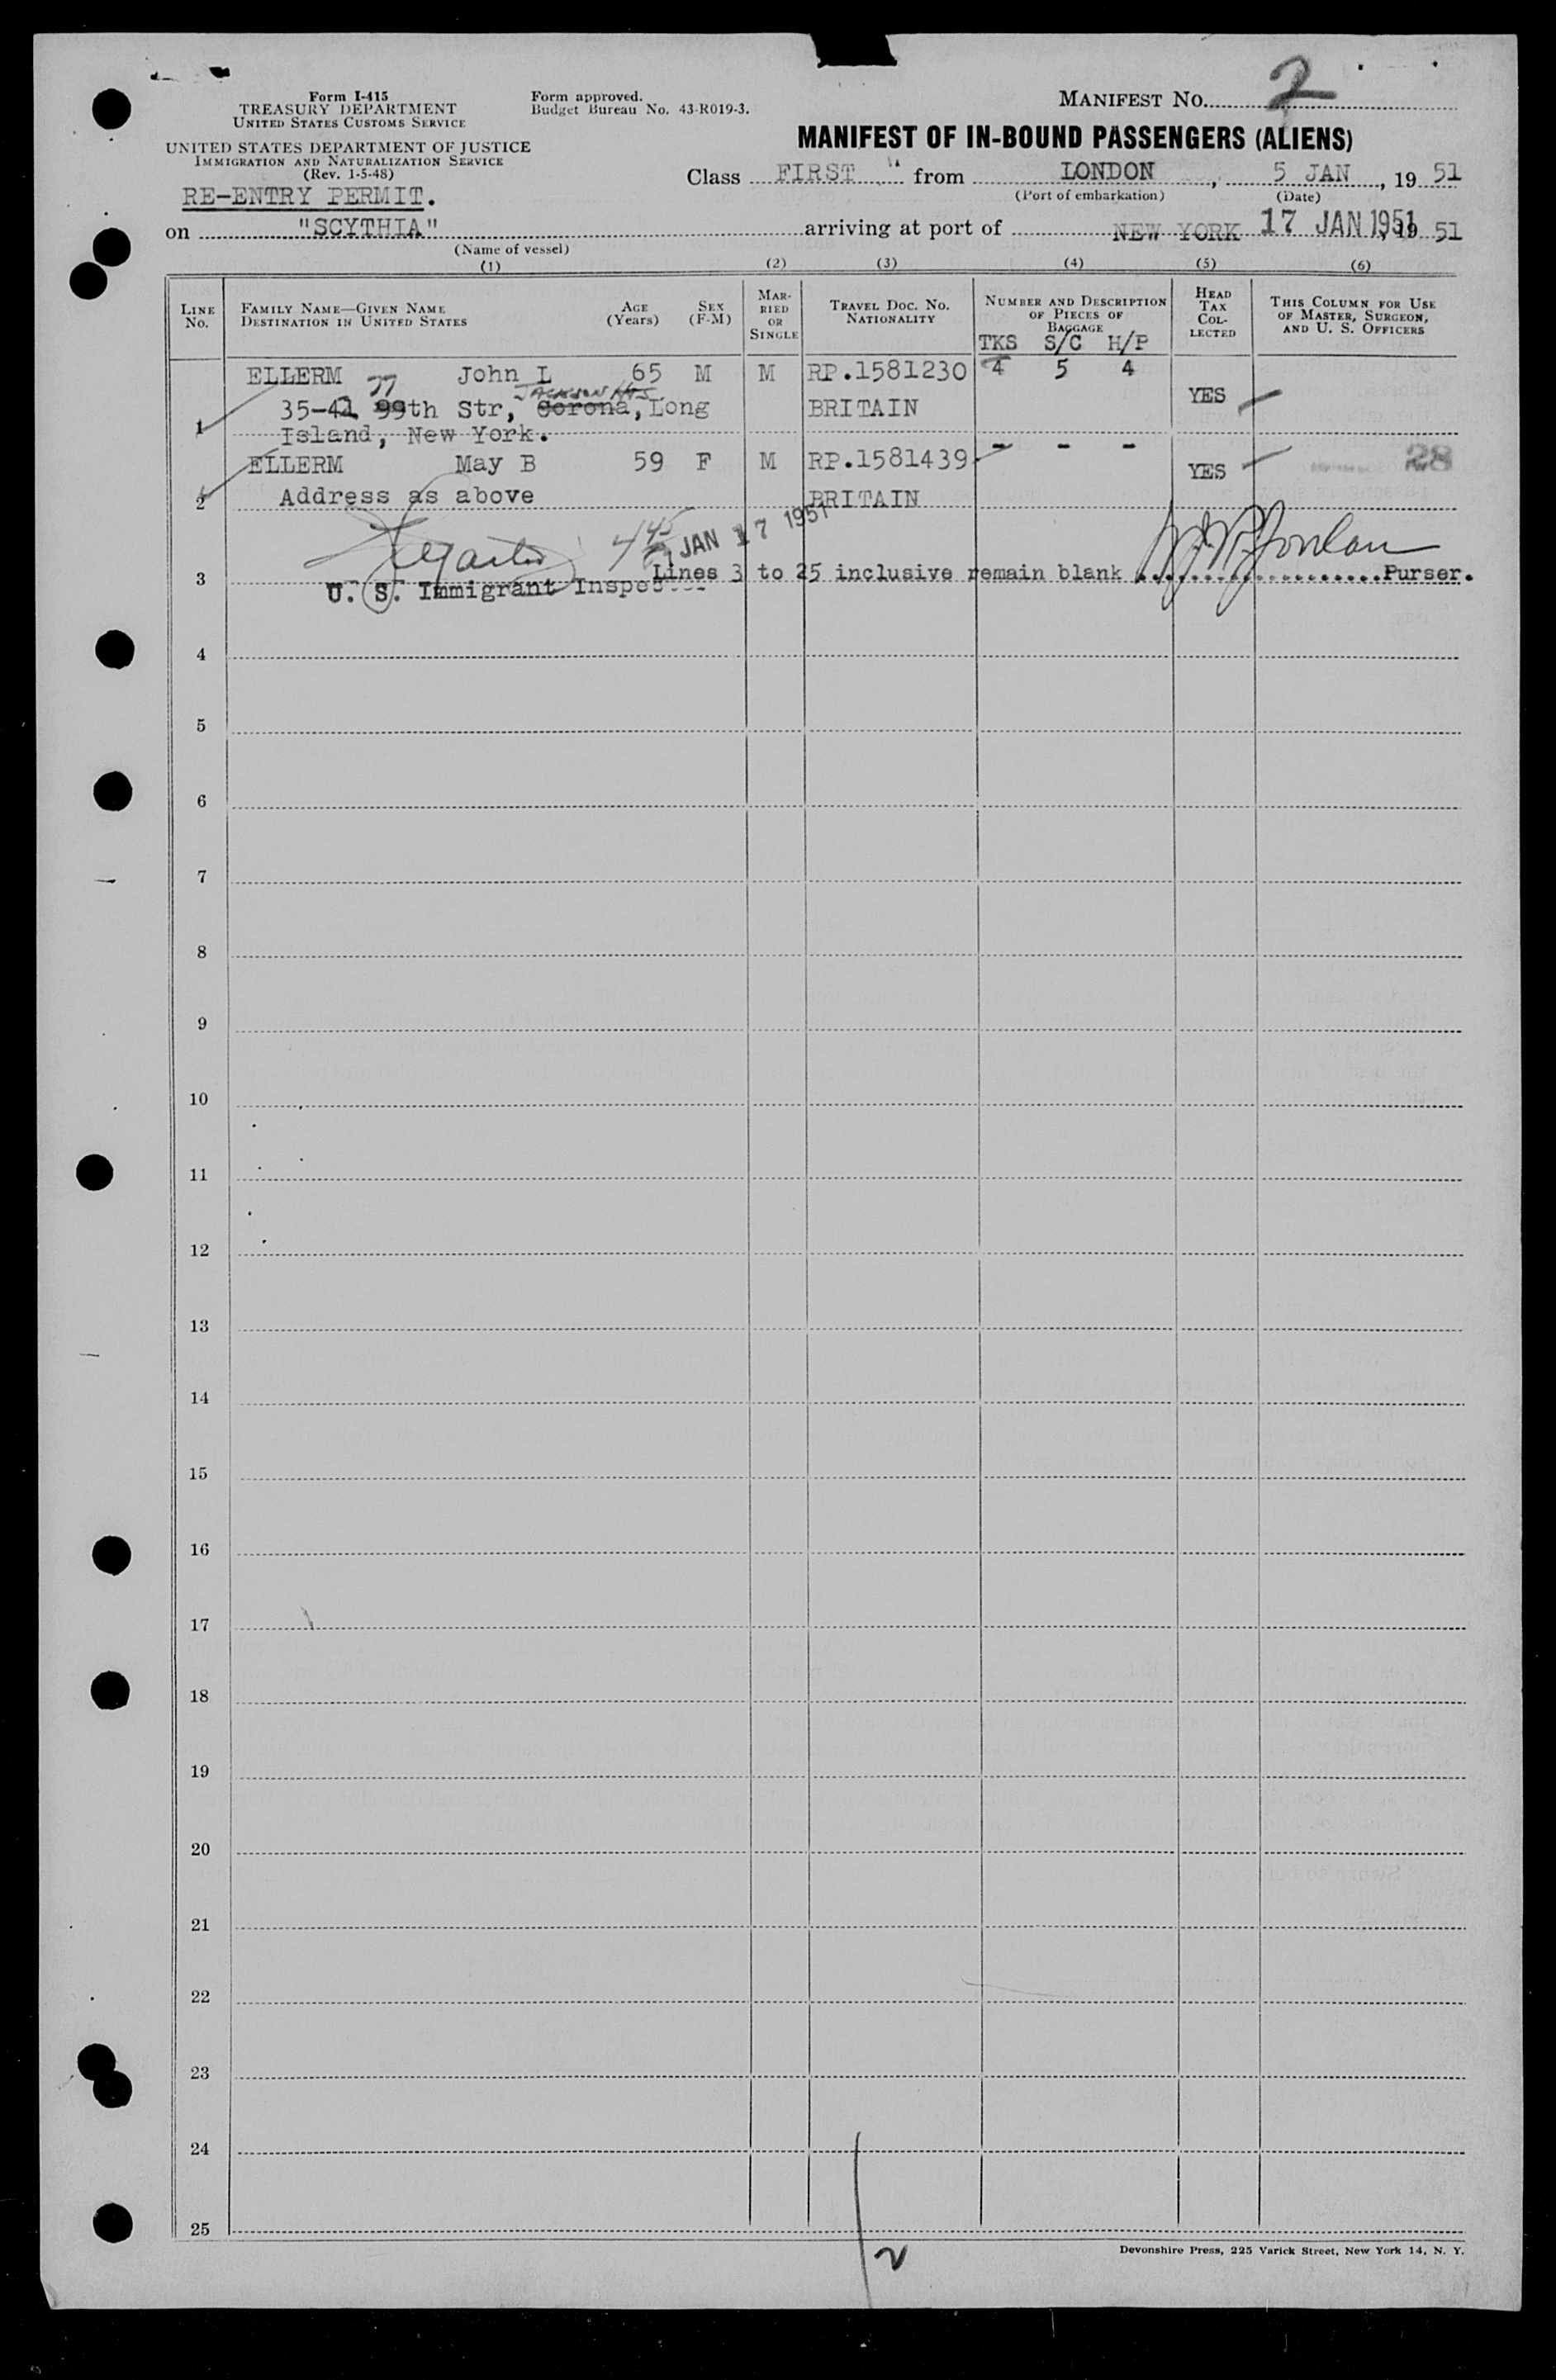 Form I-415
TREASURY DEPARTMENT
UNITED STATES CUSTOMS SERVICE
Form approved.
Budget Bureau No. 43-R019-3.
MANIFEST NO. 2
UNITED STATES DEPARTMENT OF JUSTICE
IMMIGRATION AND NATURALIZATION SERVICE
(Rev. 1-5-48)
MANIFEST OF IN-BOUND PASSENGERS (ALIENS)
RE-ENTRY PERMIT.
Class FIRST from LONDON, 5 JAN, 19 51
(Port of embarkation) (Date)
on "SCYTHIA" arriving at port of NEW YORK 17 JAN 1951, 19 51
(Name of vessel)
(1) (2) (3) (4) (5) (6)
LINE NO.
FAMILY NAME—GIVEN NAME
DESTINATION IN UNITED STATES
AGE (Years)
SEX (F-M)
MARRIED OR SINGLE
TRAVEL DOC. NO.
NATIONALITY
NUMBER AND DESCRIPTION OF PIECES OF BAGGAGE
TKS S/C H/P
HEAD TAX COLLECTED
THIS COLUMN FOR USE OF MASTER, SURGEON, AND U. S. OFFICERS
ELLERM John L 65 M M RP.1581230 4 5 4
77 JACKSON HTS
1 35-42 99th Str, Corona, Long BRITAIN YES
Island, New York.
ELLERM May B 59 F M RP.1581439 - - - YES 28
2 Address as above BRITAIN
445 JAN 17 1951
3 Lines 3 to 25 inclusive remain blank Purser.
U. S. Immigrant Inspector
4
5
6
7
8
9
10
11
12
13
14
15
16
17
18
19
20
21
22
23
24
25
2
Devonshire Press, 225 Varick Street, New York 14, N. Y.